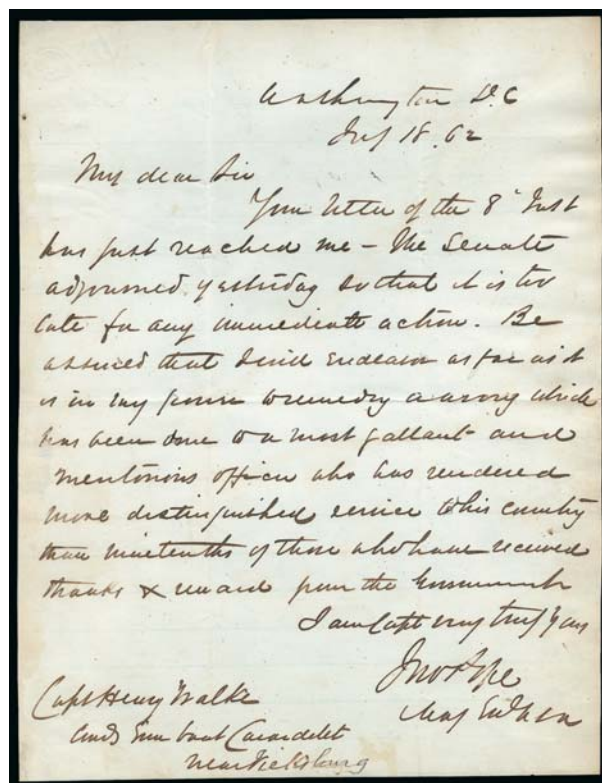 Washington D.C
July 18. 62
My dear Sir
Your letter of the 8" Inst
has just reached me – The Senate
adjourned yesterday so that it is too
late for any immediate action. Be
assured that I will endeavor as far as it
is in my power to remedy a wrong which
has been done to a most gallant and
meritorious officer who has rendered
more distinguished service to his country
than ninetenths of those who have received
thanks & reward from the Government
I am Capt very truly Yours
Jno Pope
Maj Genl USA
Capt Henry Walke
Comdg Gun boat Carondelet
near Vicksburg